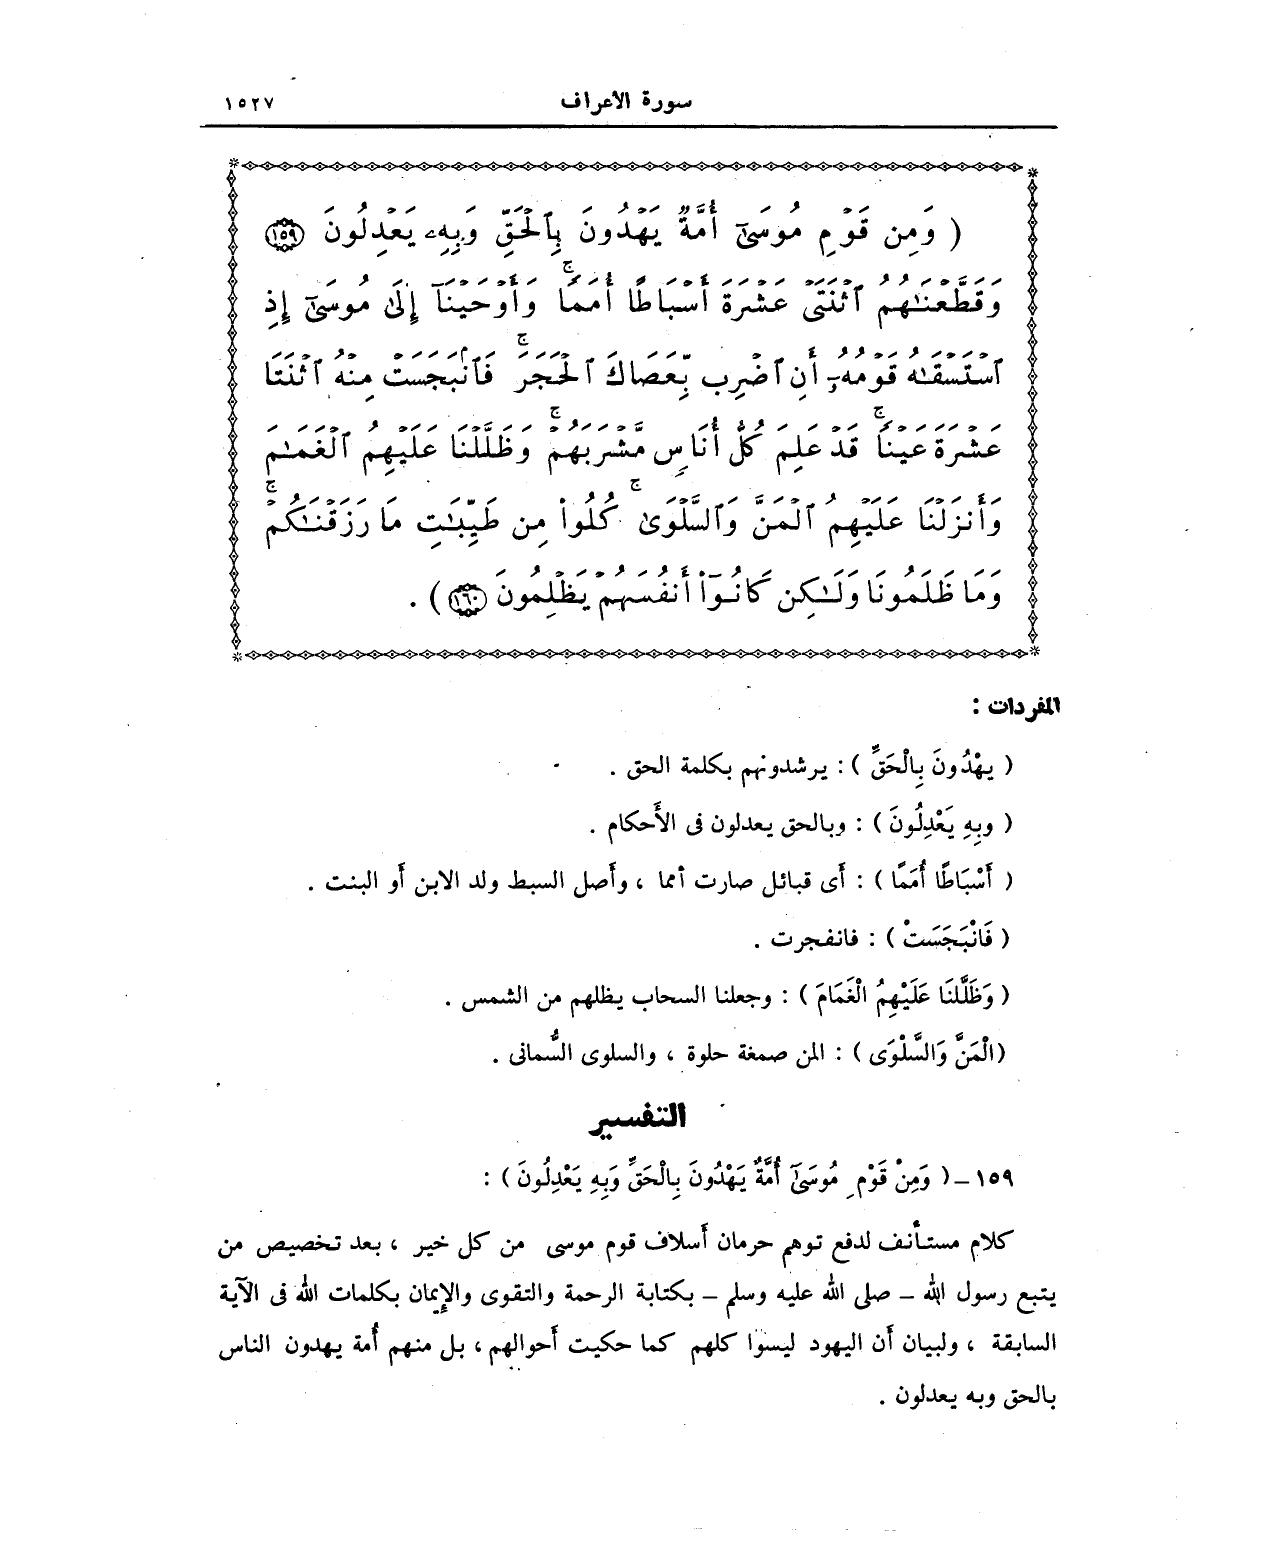 سورة الأعراف ١٥٢٧
( وَمِن قَوْمِ مُوسَىٰٓ أُمَّةٌ يَهْدُونَ بِٱلْحَقِّ وَبِهِۦ يَعْدِلُونَ ١٥٩
وَقَطَّعْنَٰهُمُ ٱثْنَتَىْ عَشْرَةَ أَسْبَاطًا أُمَمًا ۚ وَأَوْحَيْنَآ إِلَىٰ مُوسَىٰٓ إِذِ
ٱسْتَسْقَىٰهُ قَوْمُهُۥٓ أَنِ ٱضْرِب بِّعَصَاكَ ٱلْحَجَرَ ۚ فَٱنۢبَجَسَتْ مِنْهُ ٱثْنَتَا
عَشْرَةَ عَيْنًا ۚ قَدْ عَلِمَ كُلُّ أُنَاسٍ مَّشْرَبَهُمْ ۚ وَظَلَّلْنَا عَلَيْهِمُ ٱلْغَمَٰمَ
وَأَنزَلْنَا عَلَيْهِمُ ٱلْمَنَّ وَٱلسَّلْوَىٰ ۚ كُلُوا۟ مِن طَيِّبَٰتِ مَا رَزَقْنَٰكُمْ ۚ
وَمَا ظَلَمُونَا وَلَٰكِن كَانُوٓا۟ أَنفُسَهُمْ يَظْلِمُونَ ١٦٠ ) .
المفردات :
( يَهْدُونَ بِالْحَقِّ ) : يرشدونهم بكلمة الحق .
( وبِهِ يَعْدِلُونَ ) : وبالحق يعدلون فى الأَحكام .
( أَسْبَاطًا أُمَمًا ) : أَى قبائل صارت أمما ، وأَصل السبط ولد الابن أَو البنت .
( فَانْبَجَسَتْ ) : فانفجرت .
( وَظَلَّلْنَا عَلَيْهِمُ الْغَمَامَ ) : وجعلنا السحاب يظلهم من الشمس .
(الْمَنَّ وَالسَّلْوَى ) : المن صمغة حلوة ، والسلوى السُّمانى .
التفسير
١٥٩ – ( وَمِنْ قَوْمِ مُوسَىٰٓ أُمَّةٌ يَهْدُونَ بِالْحَقِّ وَبِهِ يَعْدِلُونَ ) :
كلام مستأنف لدفع توهم حرمان أَسلاف قوم موسى من كل خير ، بعد تخصيص من
يتبع رسول الله – صلى الله عليه وسلم – بكتابة الرحمة والتقوى والإيمان بكلمات الله فى الآية
السابقة ، ولبيان أَن اليهود ليسوا كلهم كما حكيت أَحوالهم ، بل منهم أُمة يهدون الناس
بالحق وبه يعدلون .